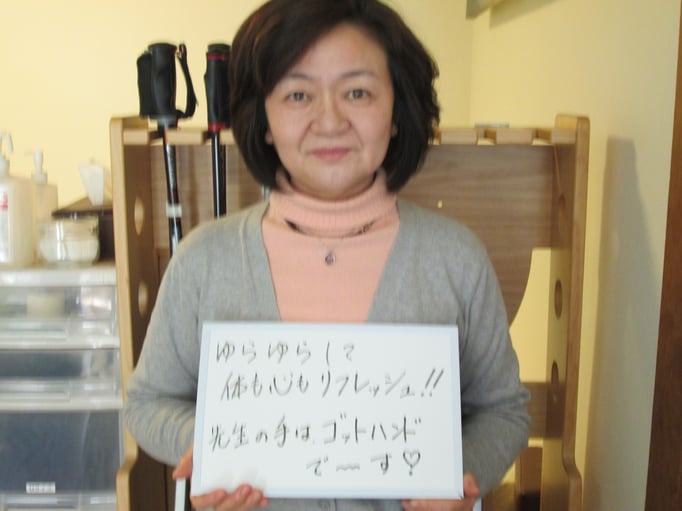 ゆらゆらして
体も心もリフレッシュ!!
先生の手は、ゴットハンド
で〜す♡